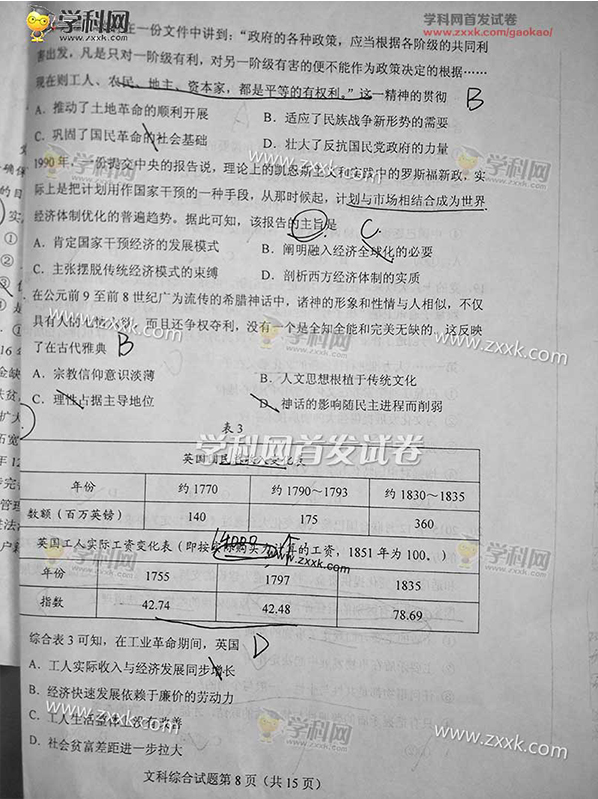 学科网
www.zxxk.com
学科网首发试卷
www.zxxk.com/gaokao/
在一份文件中讲到：“政府的各种政策，应当根据各阶级的共同利
害出发，凡是只对一阶级有利，对另一阶级有害的便不能作为政策决定的根据……
现在则工人、农民、地主、资本家，都是平等的有权利。”这一精神的贯彻 B
A．推动了土地革命的顺利开展
B．适应了民族战争新形势的需要
C．巩固了国民革命的社会基础
D．壮大了反抗国民党政府的力量
1990年，一份提交中央的报告说，理论上的凯恩斯主义和实践中的罗斯福新政，实
际上是把计划用作国家干预的一种手段，从那时候起，计划与市场相结合成为世界
经济体制优化的普遍趋势。据此可知，该报告的主旨是 C.
A．肯定国家干预经济的发展模式
B．阐明融入经济全球化的必要
C．主张摆脱传统经济模式的束缚
D．剖析西方经济体制的实质
在公元前9至前8世纪广为流传的希腊神话中，诸神的形象和性情与人相似，不仅
具有人的七情六欲，而且还争权夺利，没有一个是全知全能和完美无缺的。这反映
了在古代雅典 B
A．宗教信仰意识淡薄
B．人文思想根植于传统文化
C．理性占据主导地位
D．神话的影响随民主进程而削弱
表3
学科网首发试卷
年份 约1770 约1790～1793 约1830～1835
数额（百万英镑） 140 175 360
英国工人实际工资变化表（即按实际购买力计算的工资，1851年为100。）
年份 1755 1797 1835
指数 42.74 42.48 78.69
综合表3可知，在工业革命期间，英国 D
A．工人实际收入与经济发展同步增长
B．经济快速发展依赖于廉价的劳动力
C．工人生活整体上没有改善
D．社会贫富差距进一步拉大
文科综合试题第8页（共15页）